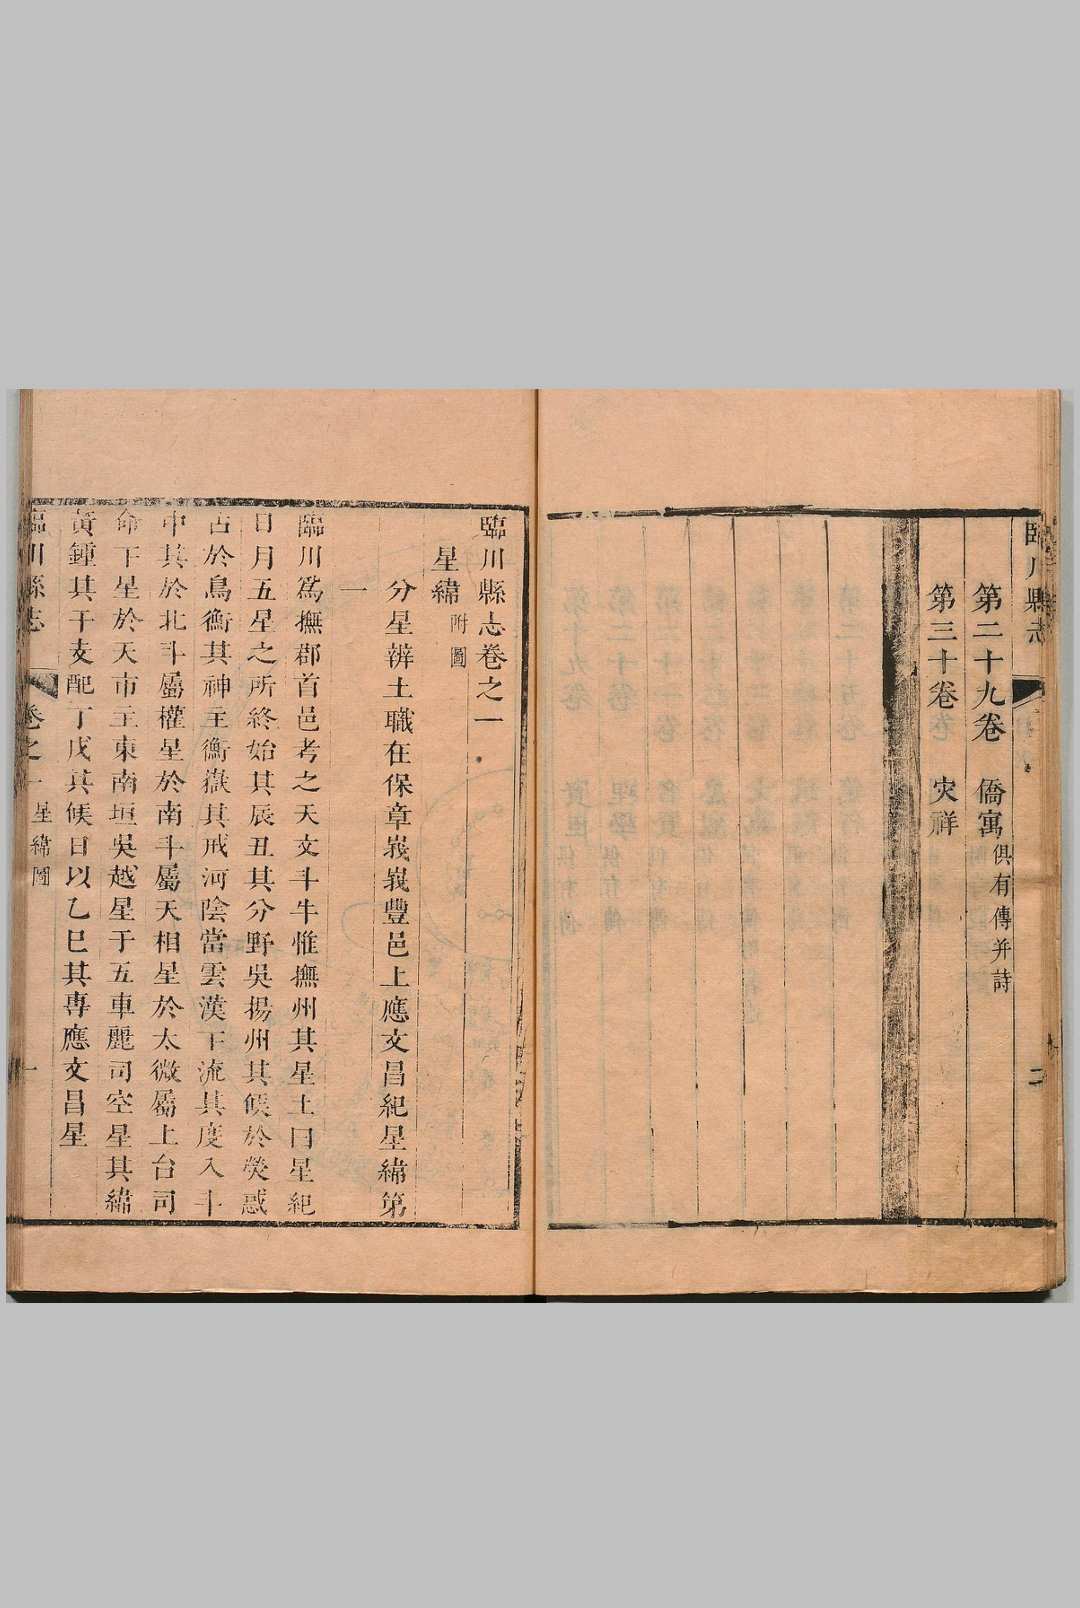 臨川縣志
二
第二十九卷 僑寓俱有傳并詩
第三十卷 灾祥
臨川縣志卷之一
星緯附圖
分星辨土職在保章峩峩豐邑上應文昌紀星緯第
一
臨川爲撫郡首邑考之天文斗牛惟撫州其星土曰星紀
日月五星之所終始其辰丑其分野吳揚州其候於熒惑
占於鳥衡其神主衡嶽其戒河陰當雲漢下流其度入斗
中其於北斗屬權星於南斗屬天相星於太微屬上台司
命下星於天市主東南垣吳越星于五車麗司空星其緯
黃鍾其干支配丁戊其候日以乙巳其專應文昌星
臨川縣志 卷之一 星緯圖 一